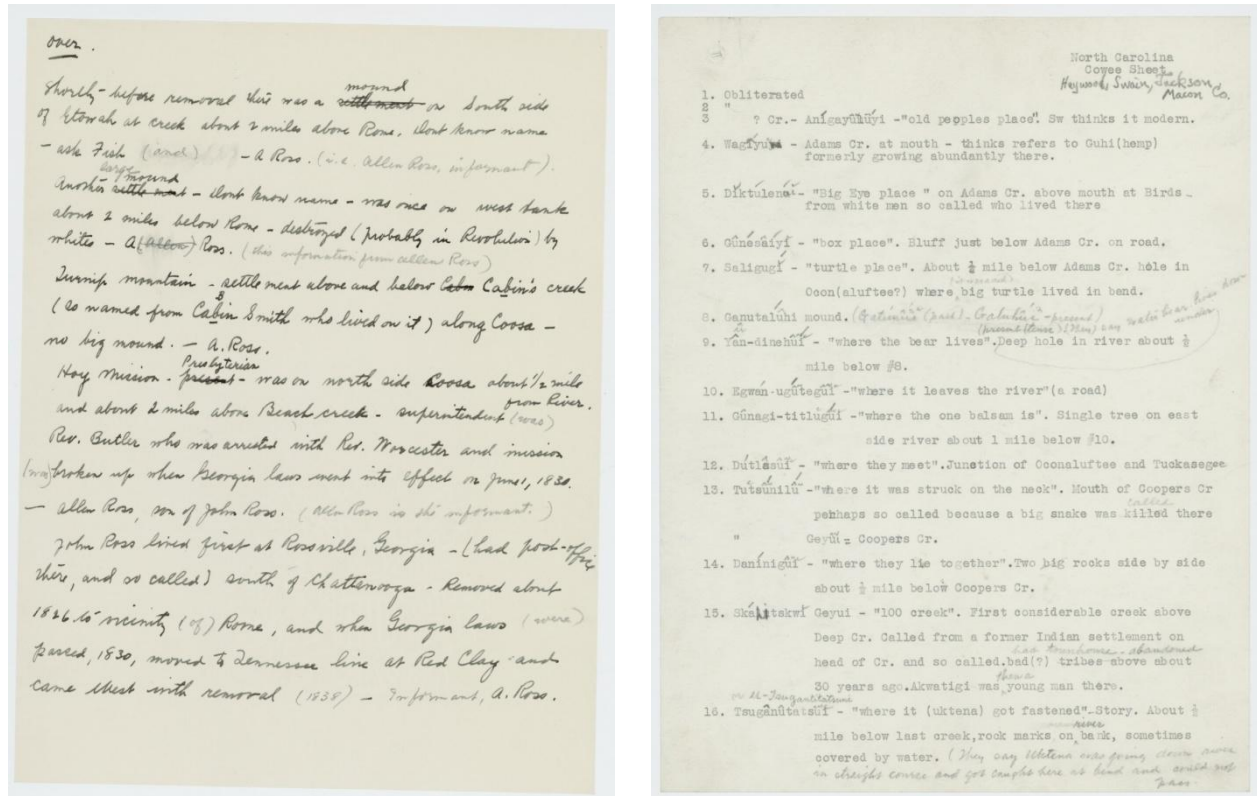 over.
Shortly before removal there was a mound settlement on South side
of Etowah at creek about 2 miles above Rome. Dont know name
- ask Fish (and) - A Ross. (i.e. Allen Ross, informant).
Another large mound settlement - dont know name - was once on west bank
about 2 miles below Rome - destroyed (probably in Revolution) by
whites - A (Allen) Ross. (this information from Allen Ross)
Turnip mountain - settlement above and below Cabin's creek
(so named from Cabin Smith who lived on it) along Coosa -
no big mound. - A. Ross.
Hoy Mission - Presbyterian - was on north side Coosa about 1/2 mile
from River.
and about 2 miles above Beach creek - superintendent (was)
Rev. Butler who was arrested with Rev. Worcester and mission
(was) broken up when Georgia laws went into effect on June 1, 1830.
- Allen Ross, son of John Ross. (Allen Ross is the informant.)
John Ross lived first at Rossville, Georgia - (had post-office
there, and so called) south of Chattanooga - Removed about
1826 to vicinity (of) Rome, and when Georgia laws (were)
passed, 1830, moved to Tennessee line at Red Clay and
came West with removal (1838) - Informant, A. Ross.
North Carolina
Cowee Sheet
Heywood, Swain, Jackson
Macon Co.
1. Obliterated
2 "
3 ? Cr.- Anígayûlúyi -"old peoples place". Sw thinks it modern.
4. Wagíyuⁿ - Adams Cr. at mouth - thinks refers to Guhi(hemp)
formerly growing abundantly there.
5. Diktúlenûⁿ - "Big Eye place " on Adams Cr. above mouth at Birds
from white men so called who lived there
6. Gûnésâíyi - "box place". Bluff just below Adams Cr. on road.
7. Saligugí - "turtle place". About ½ mile below Adams Cr. hole in
Ocon(aluftee?) where big turtle lived in bend.
8. Ganutalúhi mound.
9. Yân-dinehúⁿ - "where the bear lives".Deep hole in river about ½
mile below #8.
10. Egwán-ugûtegûⁿ -"where it leaves the river"(a road)
11. Gûnagi-titlúgûⁿ -"where the one balsam is". Single tree on east
side river about 1 mile below #10.
12. Dútlâsûⁿ - "where they meet".Junstion of Oconaluftee and Tuckasegee
13. Tutsûhilûⁿ -"where it was struck on the neck". Mouth of Coopers Cr
perhaps so called because a big snake was killed there
" Geyûⁿ = Coopers Cr.
14. Danínigûⁿ - "where they lie together".Two big rocks side by side
about ½ mile below Coopers Cr.
15. Geyui - "100 creek". First considerable creek above
Deep Cr. Called from a former Indian settlement on
had townhouse - abandoned
head of Cr. and so called.bad(?) tribes above about
30 years ago.Akwatigi was then a young man there.
16. Tsugânûtatsúⁿ - "where it (uktena) got fastened".Story. About ½
mile below last creek,rock marks on river bank, sometimes
covered by water. (They say Uktena was going down river
in streight course and got caught here at bend and could not
pass.